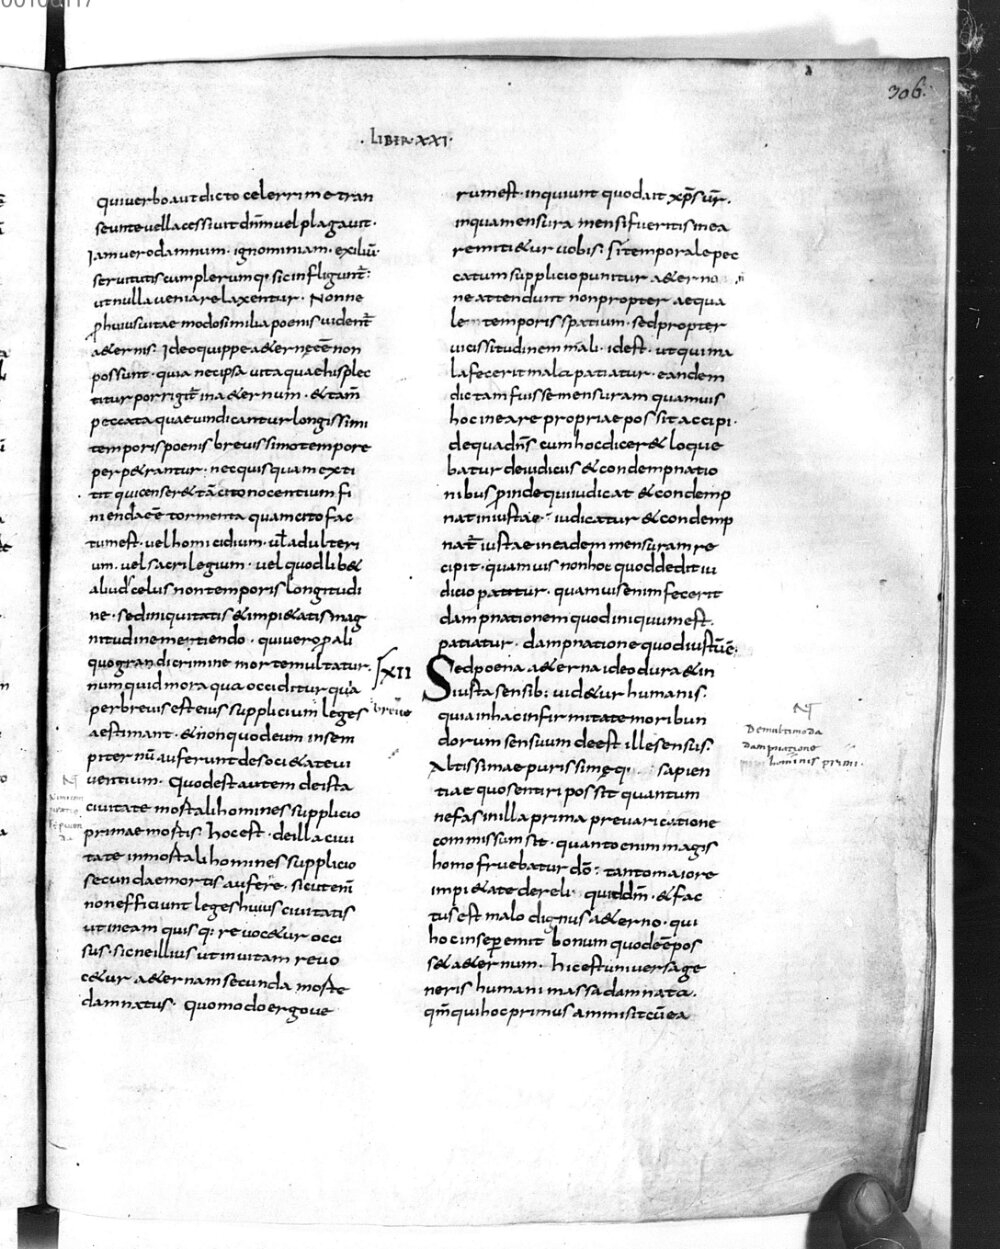 306.
· LIBER · XXI ·
qui verbo aut dicto celerrime tran
seunte vel lacessivit dñm vel plagavit ·
Iam vero damnum · ignominiam · exiliũ ·
servitutis cum plerumq; sic infligunt̃ :
ut nulla venia relaxentur · Nonne
p huius vitae modo similia poenis vident̃
a&ernis · Ideo quippe a&erne ẽẽ non
possunt · quia nec ipsa vita quae his plec
titur porrigit̃ in a&ernum · & tam̃
peccata quae vindicantur longissimi
temporis poenis brevissimo tempore
perp&rantur · nec quisquam exti
tit qui censer& tã cito nocentium fi
nienda ẽẽ tormenta quam cito fac
tum est · vel homicidium · vł adulteri
um · vel sacrilegium · vel quodlib&
aliud scelus non temporis longitudi
ne · sed iniquitatis & impi&atis mag
nitudine metiendo · qui vero p ali
quo grandi crimine morte multatur ·
numquid mora qua occiditur quã
perbrevis est eius supplicium leges
aestimant · & non quod eum in sem
piternũ auferunt de soci&ate vi
ventium · Quod est autem de ista
civitate mortali homines supplicio
primae mortis · hoc est · de illa civi
tate inmortali homines supplicio
secundae mortis auferre · sicut eñi
non efficiunt leges huius civitatis
ut in eam quisq; revoc&ur occi
sus · sic nec illius ut in vitam revo
c&ur a&ernam secunda morte
damnatus · Quomodo ergo ve
rum est · inquiunt quod ait xp̃s vr̃ ·
in qua mensura mensi fueritis in ea
remeti&ur vobis : si temporale pec
catum supplicio punitur a&erno
ne attendunt non propter aequa
le temporis spatium · sed propter
vicissitudinem mali · id est · ut qui ma
la fecerit mala patiatur · eandem
dictam fuisse mensuram quamvis
hoc in ea re proprie possit accipi ·
de qua dñs cum hoc dicer& loque
batur de iudiciis & condempnatio
nibus proinde qui iudicat & condemp
nat iniustae · iudicatur & condemp
nat̃ iustae in eadem mensuram re
cipit · quamvis non hoc quod dedit iu
dicio patitur · quamvis enim fecerit
dampnationem quod iniquum est ·
patiatur · dampnatione quod iustũ ẽ ·
XII
Sed poena a&erna ideo dura & in
iusta sensib; vid&ur humanis ·
quia in hac infirmitate moribun
dorum sensuum deest ille sensus ·
Altissimae purissimeq; sapien
tiae quo sentiri possit quantum
nefas in illa prima prevaricatione
commissum sit · quanto enim magis
homo fruebatur dõ : tanto maiore
impi&ate dereliquid dm̃ · & fac
tus est malo dignus a&erno · qui
hoc in se peremit bonum quod ẽẽ pos
s& a&ernum · Hic est universa ge
neris humani massa damnata ·
qm̃ qui hoc primus ammisit cũ ea
De multimoda
dampnatione
hominis primi ·